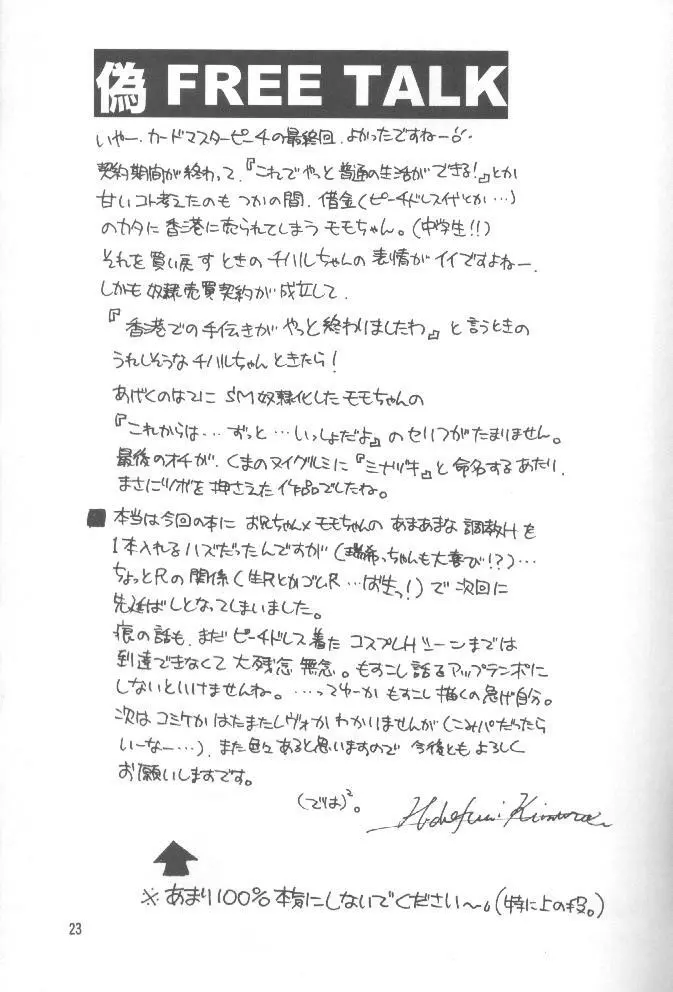 偽 FREE TALK
いやー、カードマスターピーチの最終回、よかったですねー
契約期間が終わって、『これでやっと普通の生活ができる!』とか
甘いコト考えたのもつかの間、借金(ピーチドレス代とか…)
のカタに香港に売られてしまうモモちゃん。(中学生!!)
それを買い戻すときのチハルちゃんの表情がイイですよねー。
しかも奴隷売買契約が成立して、
『香港での手伝きがやっと終わりましたわ』と言うときの
うれしそうなチハルちゃんときたら!
あげくのはてにSM奴隷化したモモちゃんの
『これからは…ずっと…いっしょだよ』のセリフがたまりません。
最後のオチが、くまのヌイグルミに『ミナヅキ』と命名するあたり、
まさにツボを押さえた作品でしたね。
■本当は今回の本にお兄ちゃん×モモちゃんのあまあまな調教Hを
1本入れるハズだったんですが(瑞希っちゃんも大喜び!?)…
ちょっとRの関係(生RとかゴムR…ば生っ!)で次回に
先延ばしとなってしまいました。
痕の話も、まだピーチドレス着たコスプレHシーンまでは
到達できなくて大残念無念。もすこし話をアップテンポに
しないといけませんね。…ってゆーかもすこし描くの急げ自分。
次はコミケかはたまたレヴォかわかりませんが(こみパだったら
いーなー…)、また色々あると思いますので今後ともよろしく
お願いしますです。
(では)²。
※あまり100%本気にしないでください〜。(特に上の段。)
23